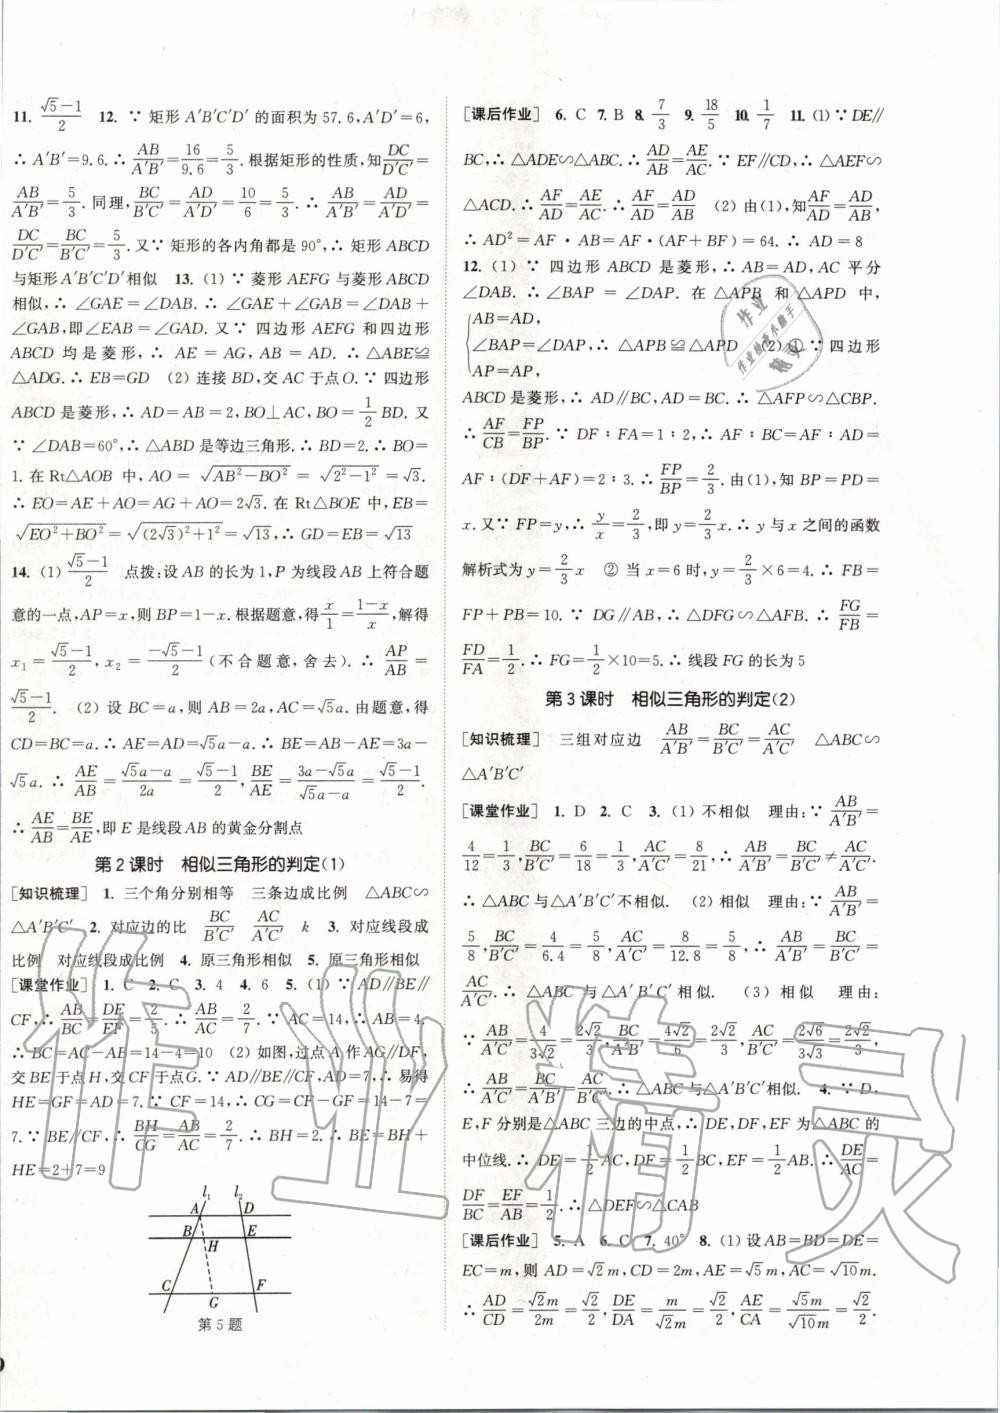 11. (√5-1)/2　12. ∵ 矩形 A′B′C′D′ 的面积为 57.6,A′D′=6,
∴ A′B′=9.6.∴ AB/A′B′=16/9.6=5/3.根据矩形的性质,知DC/D′C′=
AB/A′B′=5/3.同理,BC/B′C′=AD/A′D′=10/6=5/3.∴ AB/A′B′=AD/A′D′=
DC/D′C′=BC/B′C′=5/3.又∵ 矩形的各内角都是 90°,∴ 矩形 ABCD
与矩形 A′B′C′D′相似　13. (1) ∵ 菱形 AEFG 与菱形 ABCD
相似,∴ ∠GAE=∠DAB.∴ ∠GAE+∠GAB=∠DAB+
∠GAB,即∠EAB=∠GAD.又∵ 四边形 AEFG 和四边形
ABCD 均是菱形,∴ AE=AG,AB=AD.∴ △ABE≌
△ADG.∴ EB=GD　(2) 连接 BD,交 AC 于点 O.∵ 四边形
ABCD 是菱形,∴ AD=AB=2,BO⊥AC,BO=1/2 BD. 又
∵ ∠DAB=60°,∴ △ABD 是等边三角形.∴ BD=2.∴ BO=
1.在 Rt△AOB 中,AO=√(AB²-BO²)=√(2²-1²)=√3.
∴ EO=AE+AO=AG+AO=2√3.在 Rt△BOE 中,EB=
√(EO²+BO²)=√((2√3)²+1²)=√13,∴ GD=EB=√13
14. (1) (√5-1)/2　点拨:设 AB 的长为 1,P 为线段 AB 上符合题
意的一点,AP=x,则 BP=1-x.根据题意,得x/1=(1-x)/x,解得
x₁=(√5-1)/2, x₂=(-√5-1)/2(不合题意,舍去).∴ AP/AB=
(√5-1)/2.　(2) 设 BC=a,则 AB=2a,AC=√5a.由题意,得
CD=BC=a.∴ AE=AD=√5a-a.∴ BE=AB-AE=3a-
√5a.∴ AE/AB=(√5a-a)/2a=(√5-1)/2,BE/AE=(3a-√5a)/(√5a-a)=(√5-1)/2.
∴ AE/AB=BE/AE,即 E 是线段 AB 的黄金分割点
第 2 课时　相似三角形的判定(1)
[知识梳理]　1. 三个角分别相等　三条边成比例　△ABC∽
△A′B′C′　2. 对应边的比　BC/B′C′　AC/A′C′　k　3. 对应线段成
比例　对应线段成比例　4. 原三角形相似　5. 原三角形相似
[课堂作业]　1. C　2. C　3. 4　4. 6　5. (1) ∵ AD∥BE∥
CF,∴ AB/BC=DE/EF=2/5.∴ AB/AC=2/7.∵ AC=14,∴ AB=4.
∴ BC=AC-AB=14-4=10　(2) 如图,过点 A 作 AG∥DF,
交 BE 于点 H,交 CF 于点 G.∵ AD∥BE∥CF,∴ 易得
HE=GF=AD=7.∵ CF=14,∴ CG=CF-GF=14-7=
7.∵ BE∥CF,∴ BH/CG=AB/AC=2/7.∴ BH=2.∴ BE=BH+
HE=2+7=9
l₁ l₂
A D
B E
H
C F
G
第 5 题
[课后作业]　6. C　7. B　8. 7/3　9. 18/5　10. 1/7　11. (1) ∵ DE∥
BC,∴ △ADE∽△ABC.∴ AD/AB=AE/AC.∵ EF∥CD,∴ △AEF∽
△ACD.∴ AF/AD=AE/AC.∴ AF/AD=AD/AB　(2) 由(1),知AF/AD=AD/AB,
∴ AD²=AF·AB=AF·(AF+BF)=64.∴ AD=8
12. (1) ∵ 四边形 ABCD 是菱形,∴ AB=AD,AC 平分
∠DAB.∴ ∠BAP=∠DAP.在△APB 和△APD 中,
AB=AD,
∠BAP=∠DAP,∴ △APB≌△APD　(2) ① ∵ 四边形
AP=AP,
ABCD 是菱形,∴ AD∥BC,AD=BC.∴ △AFP∽△CBP.
∴ AF/CB=FP/BP.∵ DF∶FA=1∶2,∴ AF∶BC=AF∶AD=
AF∶(DF+AF)=2∶3.∴ FP/BP=2/3.由(1),知 BP=PD=
x.又∵ FP=y,∴ y/x=2/3,即 y=2/3 x.∴ y 与 x 之间的函数
解析式为 y=2/3 x　② 当 x=6 时,y=2/3×6=4.∴ FB=
FP+PB=10.∵ DG∥AB,∴ △DFG∽△AFB.∴ FG/FB=
FD/FA=1/2.∴ FG=1/2×10=5.∴ 线段 FG 的长为 5
第 3 课时　相似三角形的判定(2)
[知识梳理]　三组对应边　AB/A′B′=BC/B′C′=AC/A′C′　△ABC∽
△A′B′C′
[课堂作业]　1. D　2. C　3. (1) 不相似　理由:∵ AB/A′B′=
4/12=1/3,BC/B′C′=5/15=1/3,AC/A′C′=8/21,∴ AB/A′B′=BC/B′C′≠AC/A′C′.
∴ △ABC 与△A′B′C′不相似.　(2) 相似　理由:∵ AB/A′B′=
5/8,BC/B′C′=4/6.4=5/8,AC/A′C′=8/12.8=5/8,∴ AB/A′B′=BC/B′C′=
AC/A′C′.∴ △ABC 与△A′B′C′相似.　(3) 相似　理由:
∵ AB/A′C′=4/3√2=2√2/3,BC/A′B′=4√2/6=2√2/3,AC/B′C′=2√6/3√3=2√2/3,
∴ AB/A′C′=BC/A′B′=AC/B′C′.∴ △ABC 与△A′B′C′相似.　4. ∵ D,
E,F 分别是△ABC 三边的中点,∴ DE,DF,EF 为△ABC 的
中位线.∴ DE=1/2 AC,DF=1/2 BC,EF=1/2 AB.∴ DE/AC=
DF/BC=EF/AB=1/2.∴ △DEF∽△CAB
[课后作业]　5. A　6. C　7. 40°　8. (1) 设 AB=BD=DE=
EC=m,则 AD=√2m,CD=2m,AE=√5m,AC=√10m.
∴ AD/CD=√2m/2m=√2/2,DE/DA=m/√2m=√2/2,AE/CA=√5m/√10m=√2/2.
作业精灵